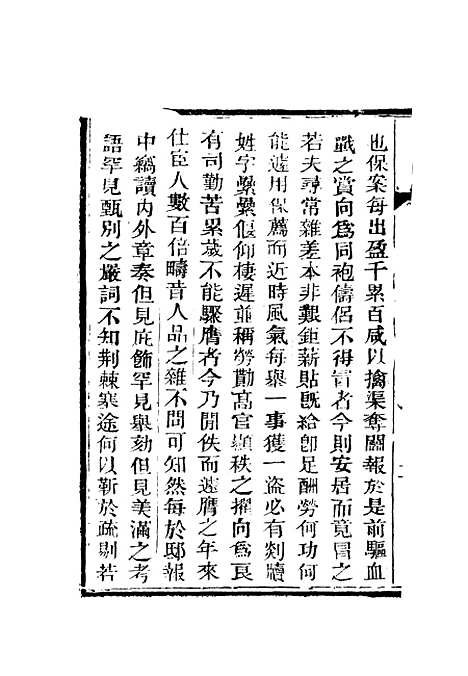 也保案每出盈千累百咸以擒渠奪關報於是前驅血
戰之賞向為同袍儔侶不得冒者今則安居而竟冒之
若夫尋常雜差本非艱鉅薪貼旣給卽足酬勞何功何
能遽用保薦而近時風氣每舉一事獲一盜必有剡牘
姓字纍纍偃仰棲遲並稱勞勩高官顯秩之擢向為良
有司勤苦累歲不能驟膺者今乃閒佚而速膺之年來
仕宦人數百倍疇昔人品之雜不問可知然每於邸報
中竊讀内外章奏但見庇飾罕見舉劾但見美滿之考
語罕見甄別之嚴詞不知荆棘塞途何以靳於疏剔若